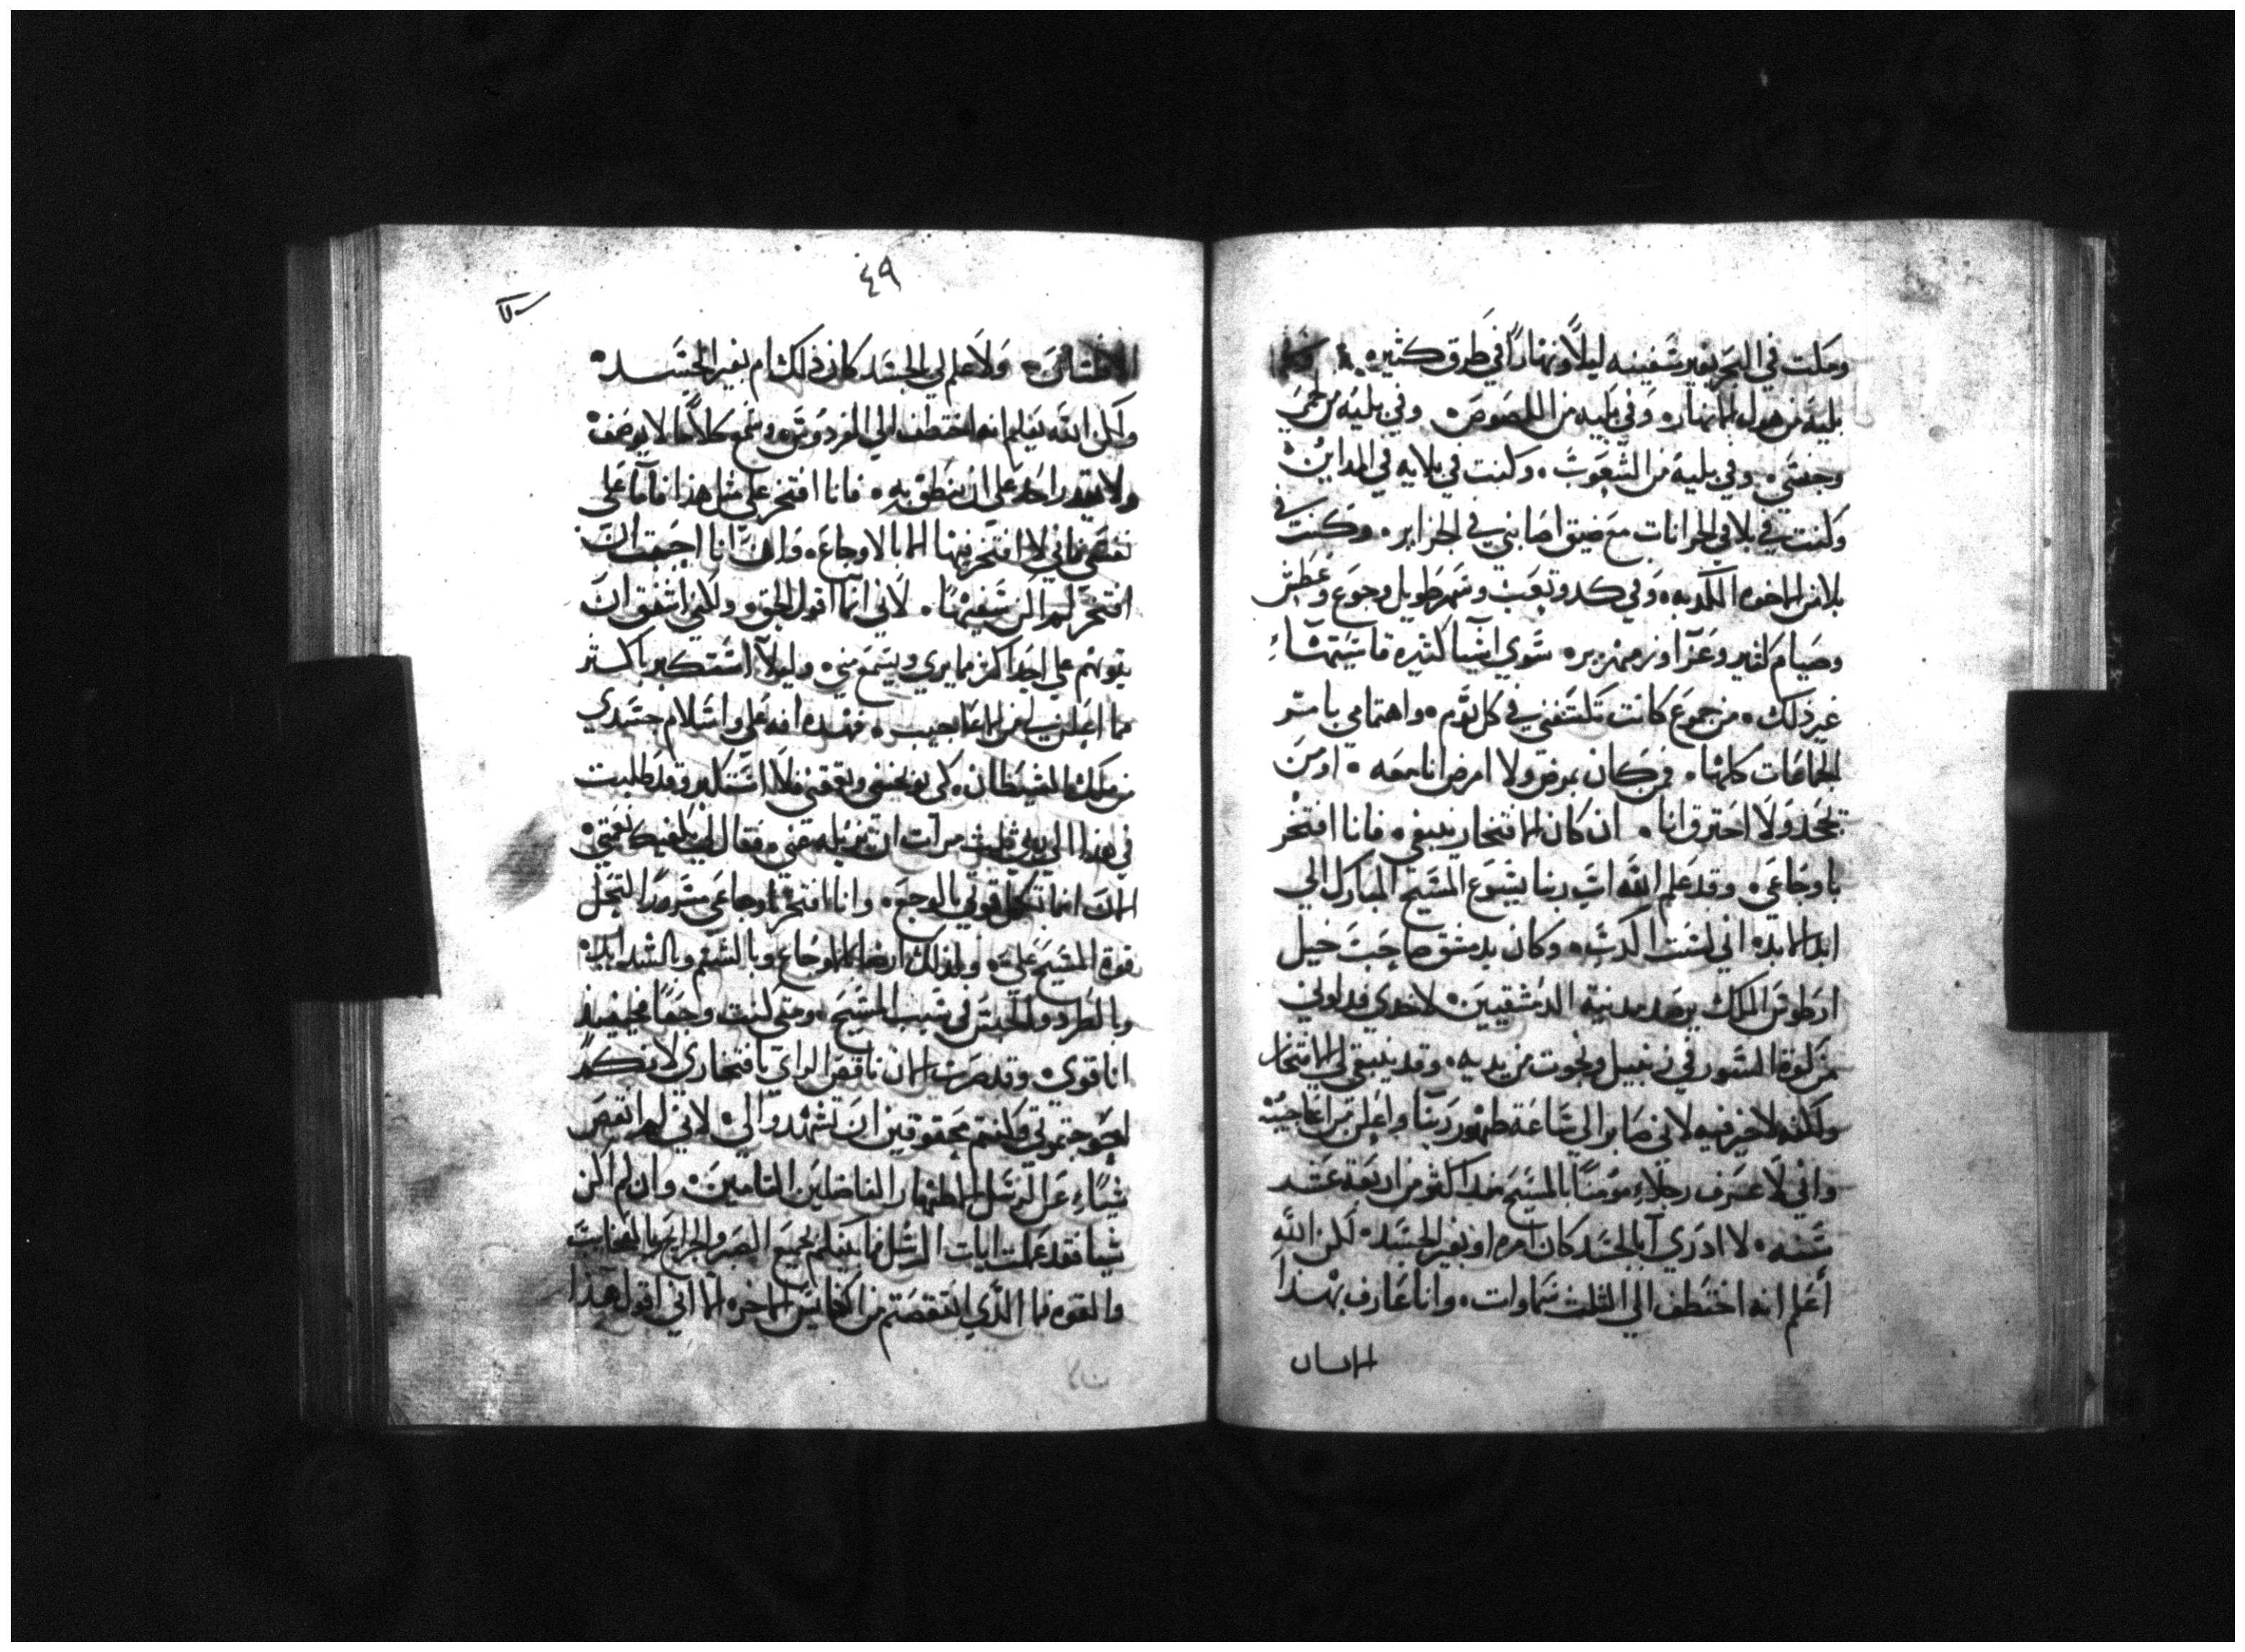 وحملت في البحر بغير سفينه ليلاً ونهاراً في طرق كثيره
بليه من هول الانهار وفي بليه من اللصوص وفي بليه من
وجنسي وفي بليه من الشعوب وكنت في بلايه في المداين
وكنت في بلا في الخرابات مع ضيق اصابني في الجزاير وكنت في
بلا من الاخوه الكدبه وفي كد وتعب وسهر طويل وجوع وعطش
وصيام كثير وعرا وزمهرير سوي اشيا كثيره
غير ذلك من جموع كانت في كل يوم واهتمامي بامر
الجماعات كلها فمن كان يمرض ولا امرض انا معه او من
يجحد ولا احترق انا ان كان الافتخار ينبغي فانا افتخر
باوجاعي وقد علم الله اب ربنا يسوع المسيح المبارك الي
ابد الابد اني لست اكدب وكان بدمشق صاحب خيل
ارطوس الملك يرصد مدينة الدمشقيين لاخدي فدلوني
من كوة السور في زنبيل ونجوت من يديه وقد ينبغي لي الافتخار
ولكنه لا خير فيه لاني صابر الي ساعة ظهور ربنا واعلن من اعاجيبه
واني لاعرف رجلاً مومناً بالمسيح منذ اكثر من اربعة عشر
سنه لا ادري ابالجسد كان امره او بغير الجسد لكن الله
أعلم انه اختطف الي الثلث سماوات وانا عارف بهذا
الانسان
٤٩
الانسان ولا علم لي بالجسد كان ذلك ام بغير الجسد
ولكن الله يعلم انه اختطف الي الفردوس وسمع كلاماً لا يوصف
ولا يقدر احد علي ان ينطق به فانا افتخر علي مثل هذا فاما علي
نفسي فاني لا افتخر فيها الا بالاوجاع وان انا احببت ان
افتخر لم اكن سفيهاً لاني انما اقول الحق ولكني اشفق ان
يتوهم علي احد اكثر مما يري ويسمع مني وليلا استكبر باكثر
مما اعلن لي من الاعاجيب فهذه انه علي واسلام جسدي
من ملك الشيطان كي يوبخني ويقمعني فلا استكبر وقد طلبت
في هذا الي ربي ثلث مرات ان يزيله عني فقال لي يكفيك نعمتي
لان انما تكمل قوتي بالوجع وانا افتخر باوجاعي مسروراً لتحل
قوة المسيح علي ولذلك ارضا بالاوجاع وبالشتم وبالشدايد
وبالطرد والحبس في سبب المسيح ومتي كنت وجعاً فحينيذ
انا قوي وقد صرت الان ناقص الراي بافتخاري لانكم
احوجتموني وكنتم محقوقين ان تشهدوا لي لاني لم انقص
شياً عن الرسل الاطهار الفاضلين التامين وان لم اكن
شيا فقد عملت ايات الرسل فيما بينكم بجميع الصبر والجرايح والعجايب
والقوه فما الذي انتقصتم من الكنايس الاخر الا اني اقول هذا